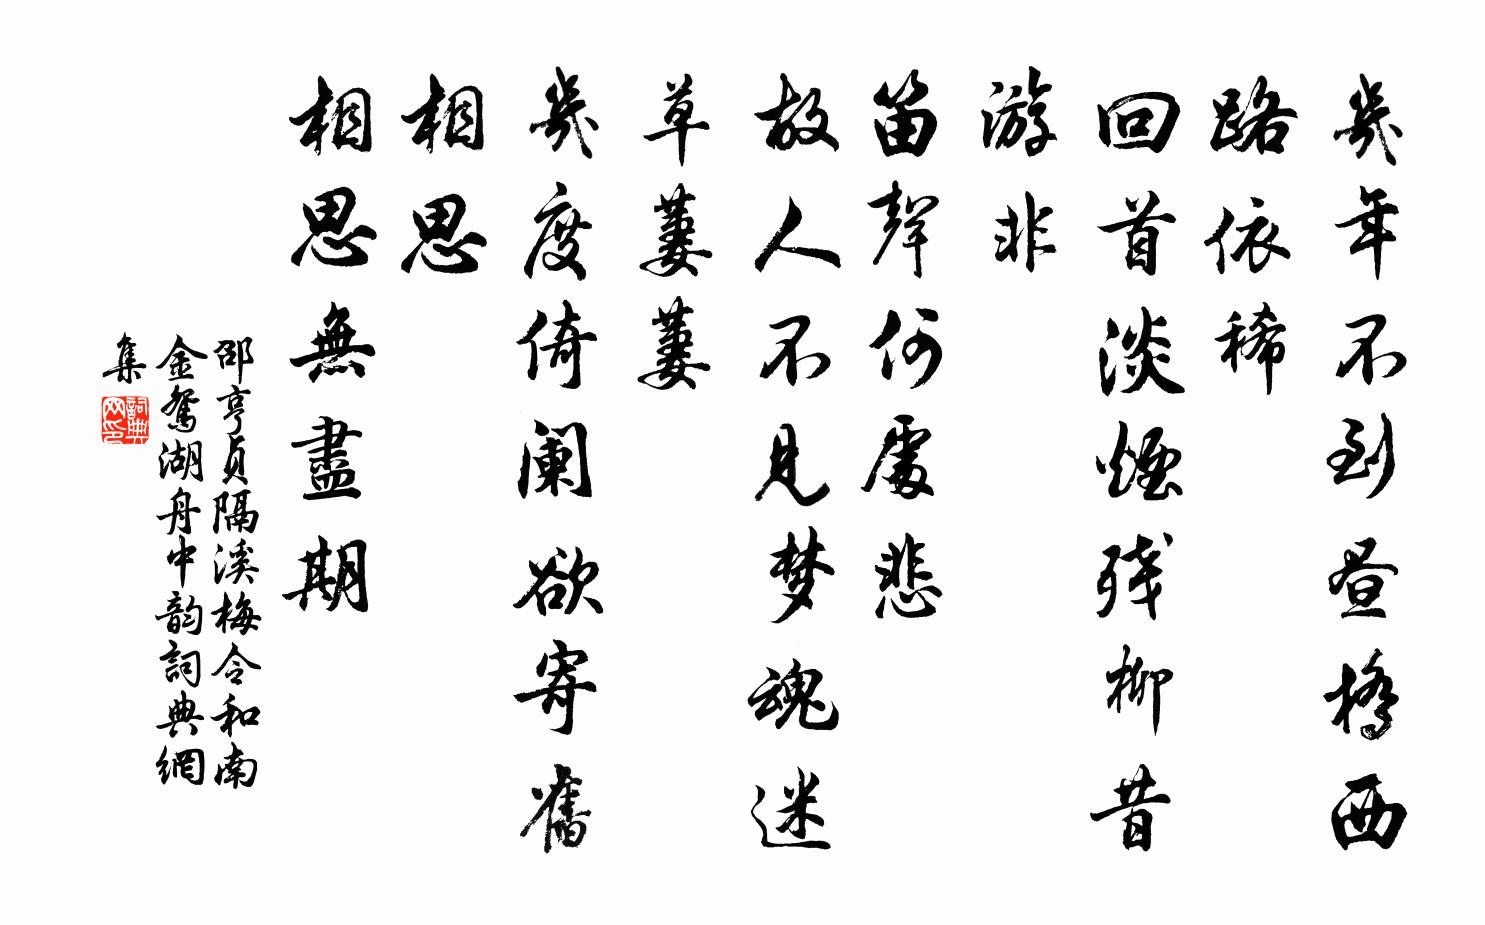 幾年不到畫橋西
路依稀
回首淡煙残柳昔
游非
笛聲何處悲
故人不見梦魂迷
草萋萋
幾度倚闌欲寄舊
相思
相思無盡期
邵亨貞隔溪梅令和南
金鴛湖舟中韵詞典網
集
詞典
网印